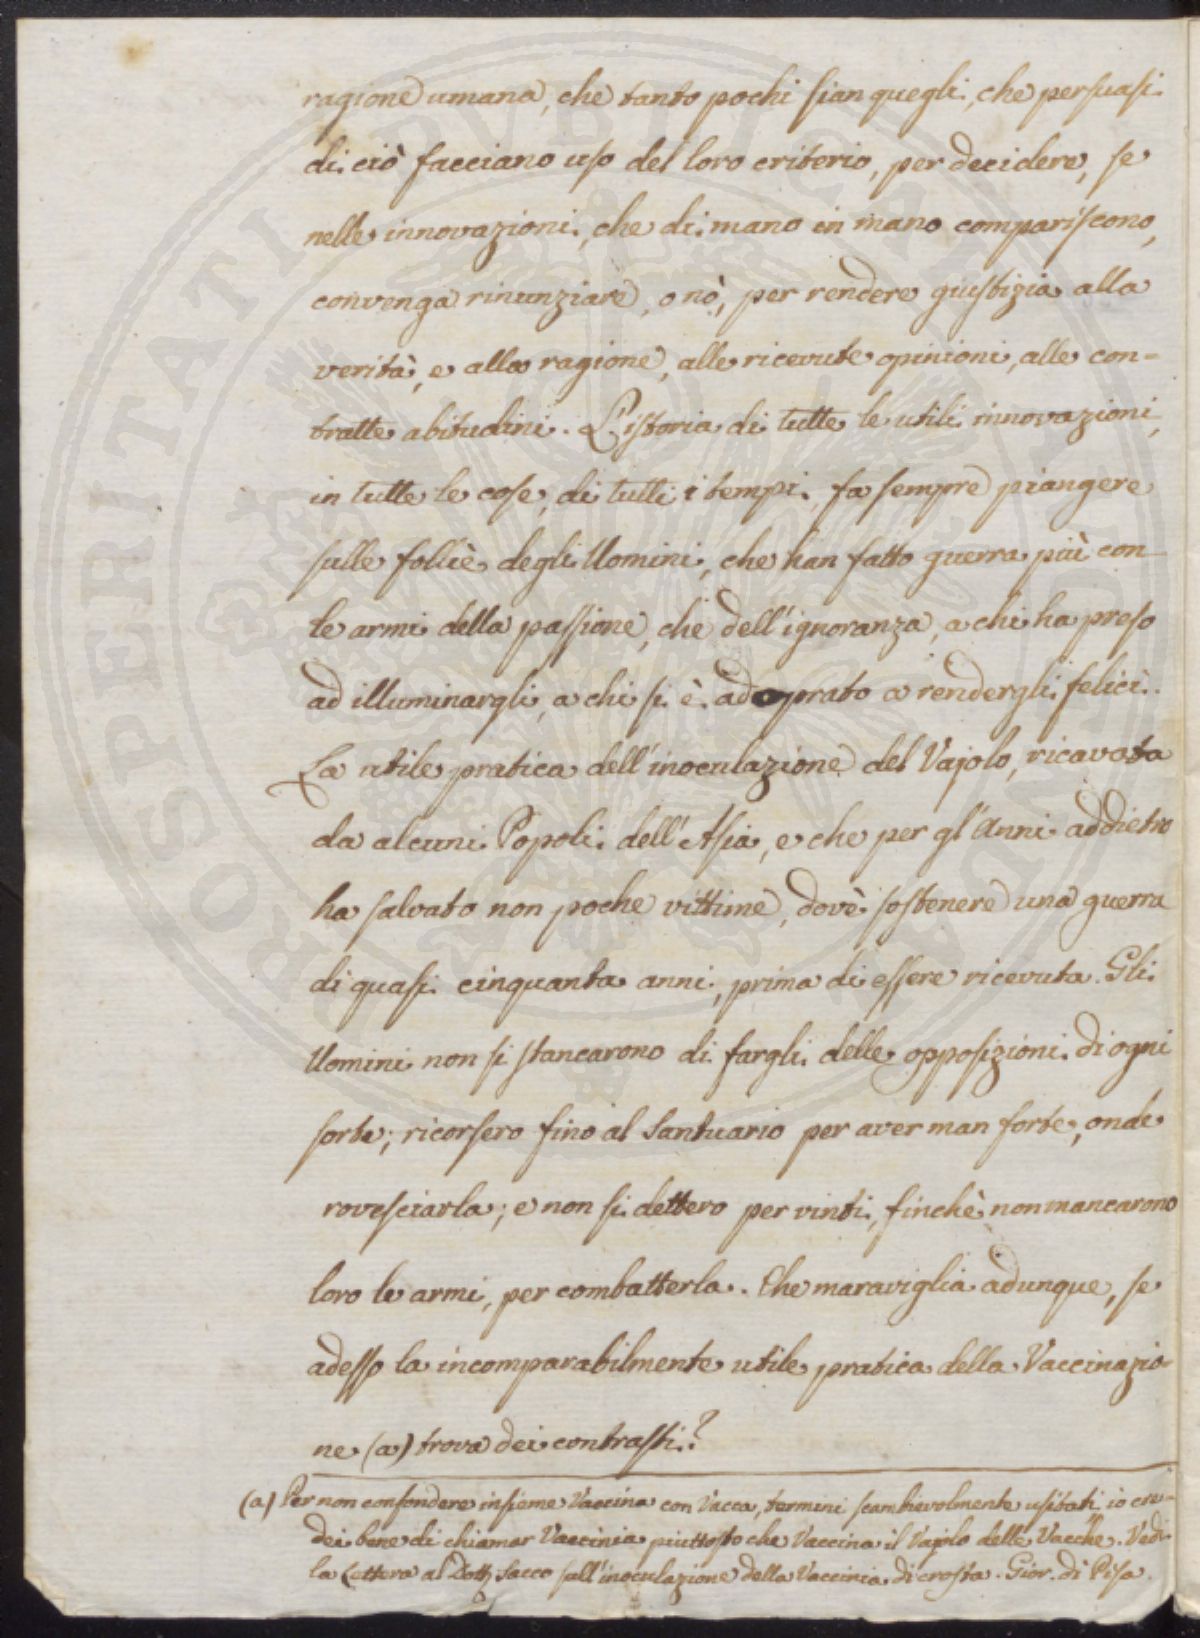 ragione umana, che tanto pochi sian quegli, che persuasi
di ciò facciano uso del loro criterio, per decidere, se
nelle innovazioni, che di mano in mano compariscono,
convenga rinunziare, o nò, per rendere giustizia alla
verità, e alla ragione, alle ricevute opinioni, alle con=
tratte abitudini. L'istoria di tutte le utili innovazioni,
in tutte le cose, di tutti i tempi, fa sempre piangere
sulle follie degli Uomini, che han fatto guerra più con
le armi della passione, che dell'ignoranza, a chi ha preso
ad illuminargli, a chi si è adoprato a rendergli felici.
La utile pratica dell'inoculazione del Vajolo, ricavata
da alcuni Popoli dell'Asia, e che per gl'Anni addietro
ha salvato non poche vittime, dovè sostenere una guerra
di quasi cinquanta anni, prima di essere ricevuta. Gli
Uomini non si stancarono di fargli delle opposizioni di ogni
sorte; ricorsero fino al Santuario per aver man forte, onde
rovesciarla; e non si dettero per vinti, finchè non mancarono
loro le armi, per combatterla. Che maraviglia adunque, se
adesso la incomparabilmente utile pratica della Vaccinazio-
ne (a) trova dei contrasti?
(a) Per non confondere insieme Vaccina con Vacca, termini scambievolmente usitati io cre=
dei bene di chiamar Vaccinia piuttosto che Vaccina il Vajolo delle Vacche. Vedi
la Lettera al Dott. Sacco sull'inoculazione della Vaccinia di crosta. Gior. di Pisa.
PROSPERITATI PUBLICAE